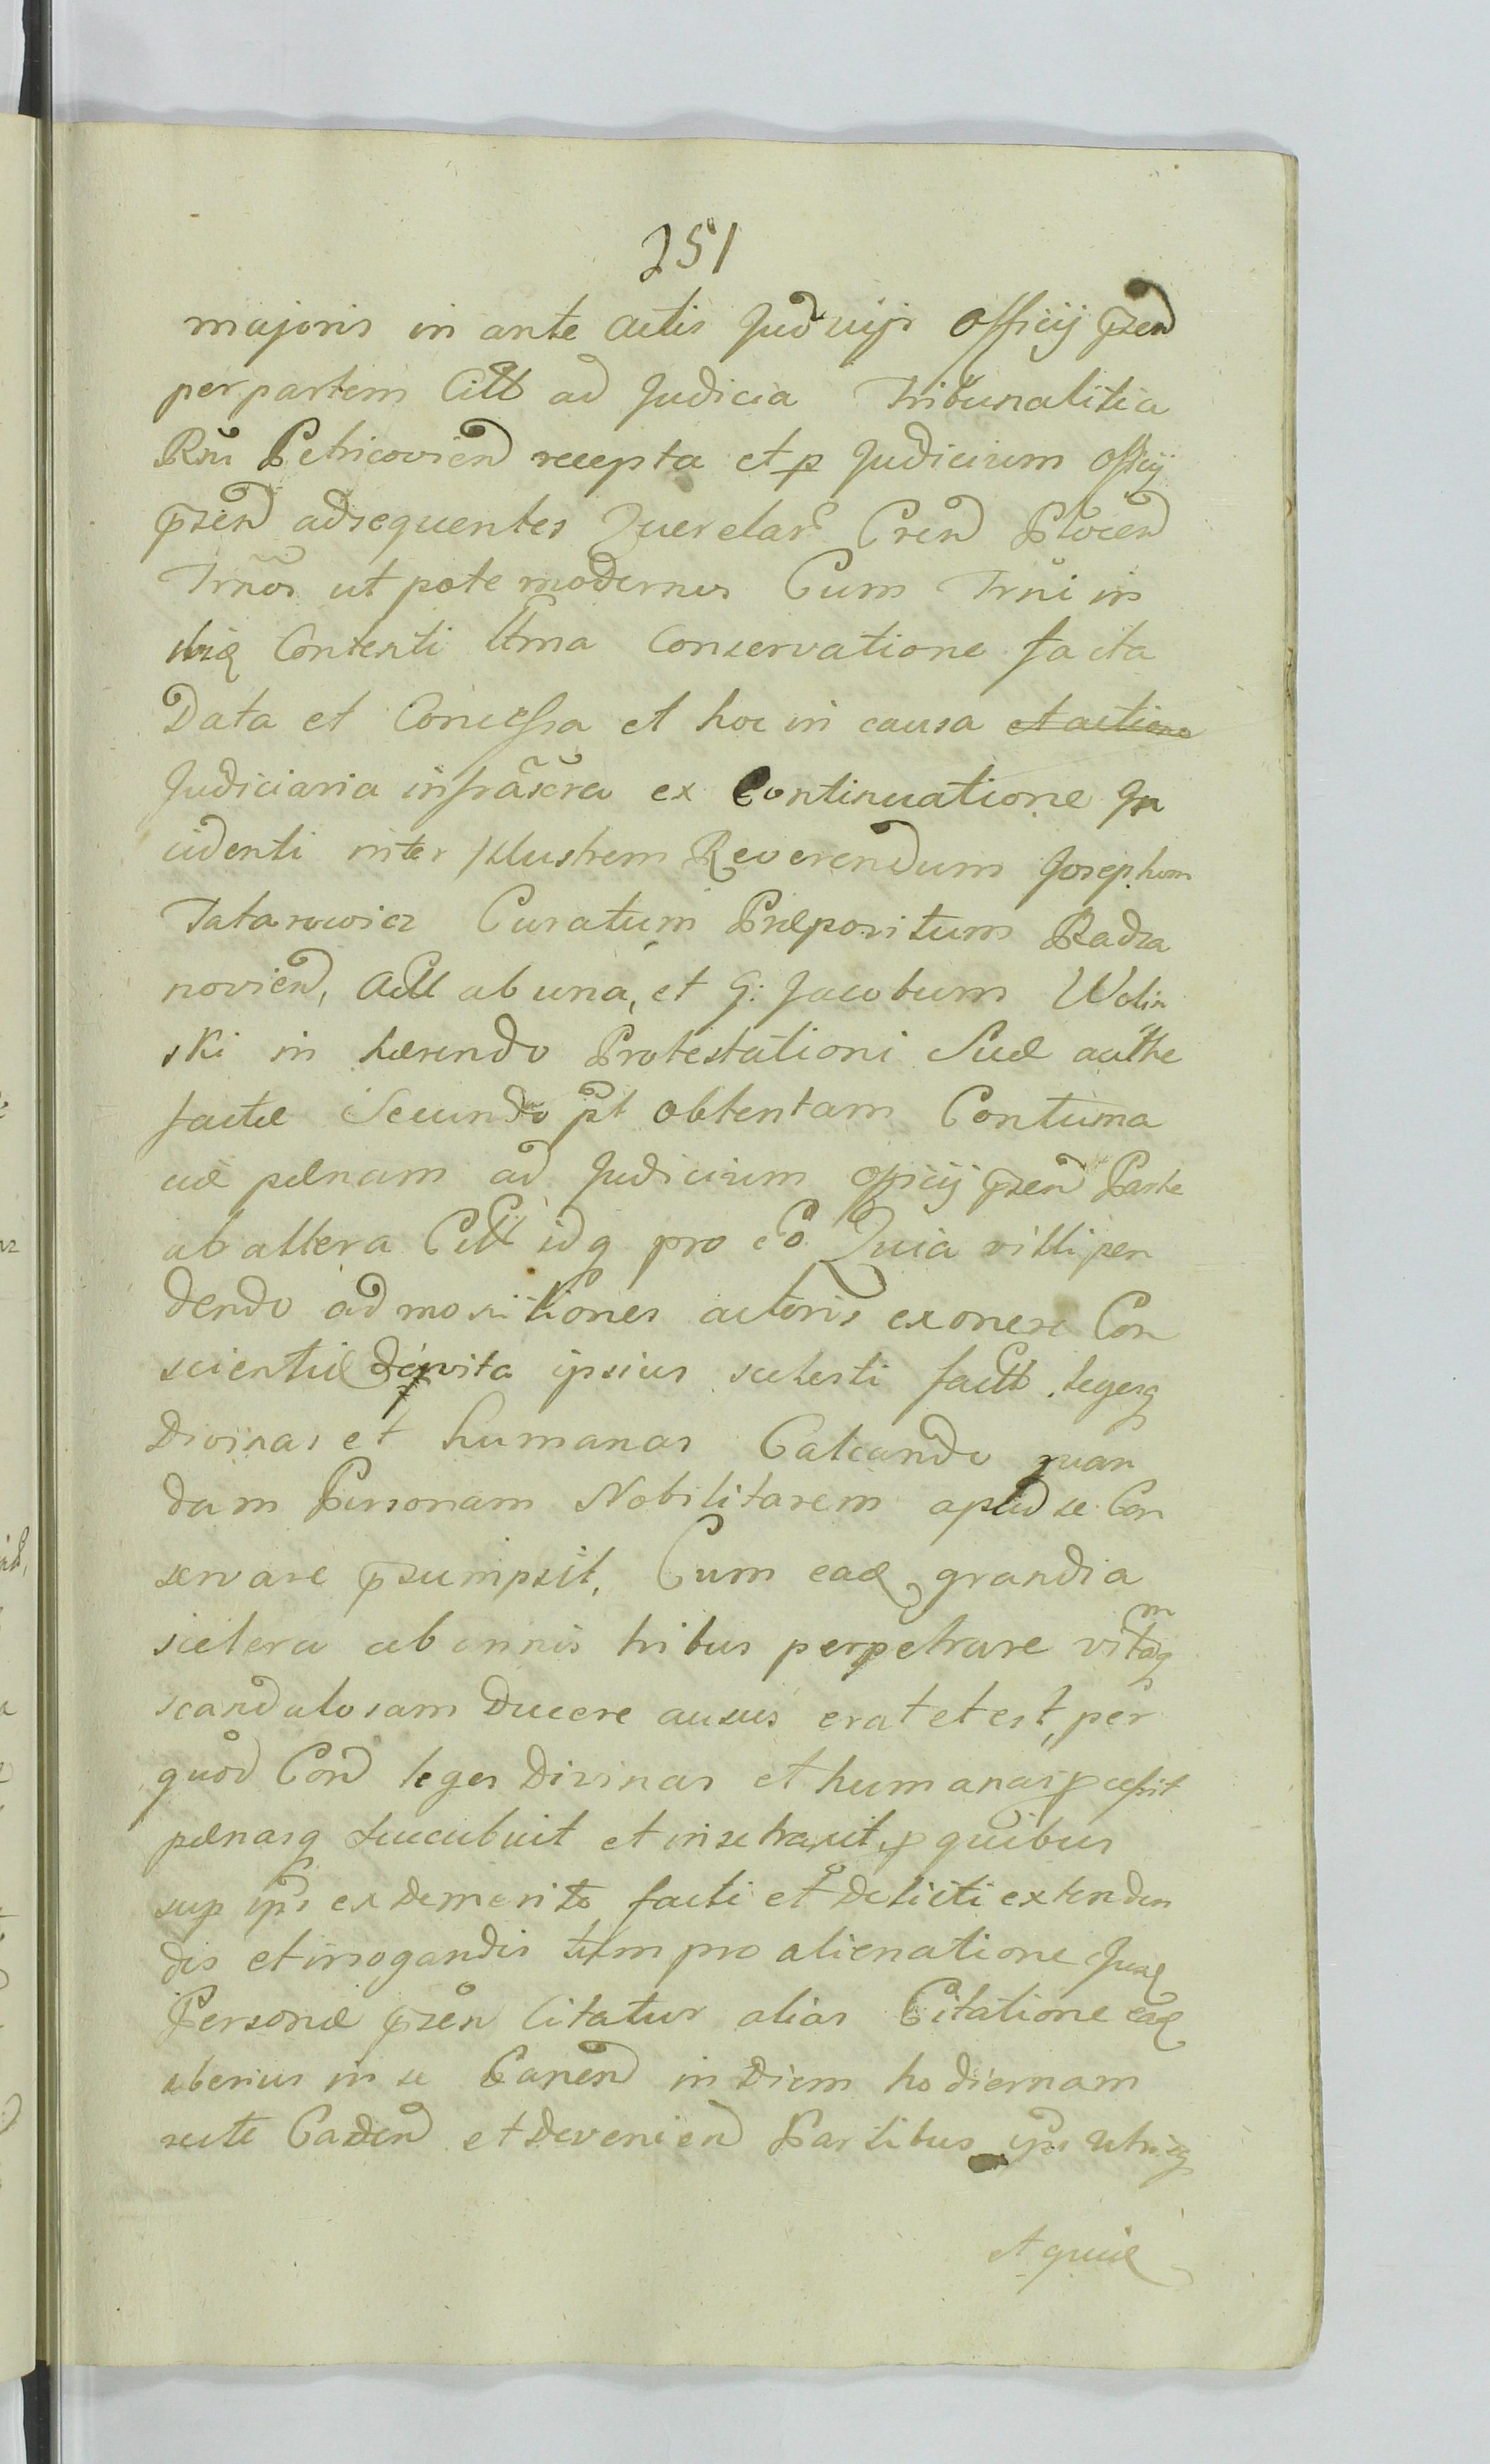 251
majoris in ante actis Jud uijs officij pzen
per partem Citt ad Judicia Tribunalitia
Rni Petricovien recepta et p Judicium officij
pzen adsequentes Querelar Cren Plocen
Trnos ut pote modernus Cum Trni in
Contenti ltma Conservatione facta
Data et Concessa et hoc in causa et actione
Judiciaria infrascra ex Continuatione In
cidenti inter Jllustrem Reverendum Josephum
Tatarowicz Curatum Præpositum Radza
novien, Act ab una, et G: Jacobum Wolin
ski in hærendo Protestationi Suæ authe
factæ Secundo pt obtentam Contuma
ciæ pænam ad Judicium officij pzen Parte
ab altera Citt idq pro eo Quia villipen
dendo admonitiones actoris exonere Con
scientiæ vita ipsius scelesti factt legesq
Divinas et humanas Calcando quan
dam Personam Nobilitarem apud se Con
servare pzumpsit, Cum eaq grandia
scelera ab annis tribus perpetrare vitamq
scandalosam Ducere ausus erat et est, per
quod Con leges Divinas et humanas pcessit
pænasq succubuit et in se traxit, p quibus
sup ips ex demerito facti et Delicti extenden
dis et irrogandis tum pro alienatione Jusq
Personæ pzen Citatur alias Citatione eaq
uberius in se Canen in Diem hodiernam
recte Caden et Devenien Partibus ips Utrisq
et quiæ